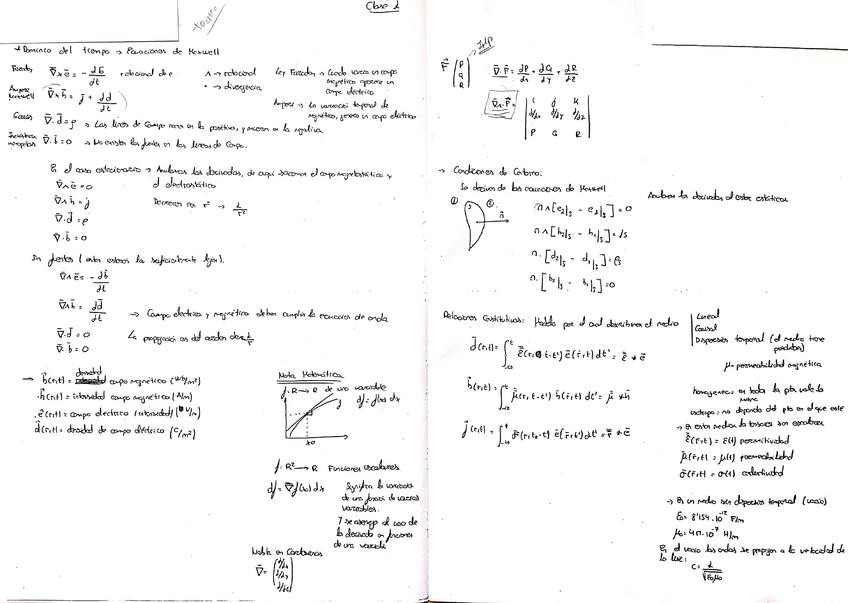 Clase 2
* Dominio del tiempo → Ecuaciones de Maxwell
Faraday ∇̄ ∧ ē = - db̄/dt rotacional de e ∧ → rotacional Ley Faraday → Cuando varía un campo
magnético aparece un
campo eléctrico
Ampere Maxwell ∇̄ ∧ h̄ = j̄ + dd̄/dt • → divergencia
Ampere → La variación temporal de
magnético, genera un campo eléctrico
Gauss ∇̄ · d̄ = ρ → Las líneas de campo nacen en la positiva, y mueren en la negativa
∇̄ · b̄ = 0 → No existen las fuentes en las líneas de campo.
En el caso estacionario → Anulamos las derivadas, de aquí sacamos el campo magnetostático y
el electrostático
∇̄ ∧ ē = 0
∇̄ ∧ h̄ = j̄
Decrecen con r² → 1/r²
∇̄ · d̄ = ρ
∇̄ · b̄ = 0
Sin fuentes (estan estarán lo suficientemente lejos).
∇̄ ∧ ē = - db̄/dt
∇̄ ∧ h̄ = dd̄/dt → Campo eléctrico y magnético deben cumplir la ecuación de onda
∇̄ · d̄ = 0 La propagación es del orden de 1/r
∇̄ · b̄ = 0
→ b̄(r,t) = densidad campo magnético (Wb/m²)
· h̄(r,t) = intensidad campo magnético (A/m)
· ē(r,t) = campo eléctrico (intensidad) (V/m)
d̄(r,t) = densidad de campo eléctrico (C/m²)
Nota Matemática
f: R → R de una variable
f df = f'(x) dx
x0
f: R² → R Funciones escalares
df = ∇̄f(x) dx Significa la variación
de una función de varias
variables.
Y se asemeja al caso de
la derivada en funciones
de una variable
Nabla en Cartesianas
∇̄ = (d/dx d/dy d/dz)
F̄ (P Q R) ∇̄ · F̄ = ∂P/∂x + ∂Q/∂y + ∂R/∂z
∇̄ ∧ F̄ = | i j k
d/dx d/dy d/dz
P Q R |
→ Condiciones de Contorno:
Se derivan de las ecuaciones de Maxwell Anulamos las derivadas al estar estáticos
① S ② n̄
n ∧ [e₂|s - e₁|s] = 0
n ∧ [h₂|s - h₁|s] = Js
n · [d₂|s - d₁|s] = ρs
n · [b₂|s - b₁|s] = 0
Relaciones Constitutivas: Modelo por el cual describimos el medio
Lineal
Causal
Dispersión temporal (el medio tiene
pérdidas)
d̄(r,t) = ∫ ε̄(r, t-t') ē(r,t') dt' = ε̄ * ē
μ = permeabilidad magnética
b̄(r,t) = ∫ μ̄(r, t-t') h̄(r,t') dt' = μ̄ * h̄
homogeneo: en todos los ptos vale lo
mismo
isotropo: no depende del pto en el que esté
j̄(r,t) = ∫ σ̄(r, t-t') ē(r,t') dt' = σ̄ * ē
→ En estos medios los tensores son escalares
ε̄(r,t) = ε(t) permitividad
μ̄(r,t) = μ(t) permeabilidad
σ̄(r,t) = σ(t) conductividad
→ En un medio sin dispersión temporal (vacío)
ε₀ = 8'854 · 10⁻¹² F/m
μ₀ = 4π · 10⁻⁷ H/m
En el vacío las ondas se propagan a la velocidad de
la luz:
c = 1/√(ε₀μ₀)